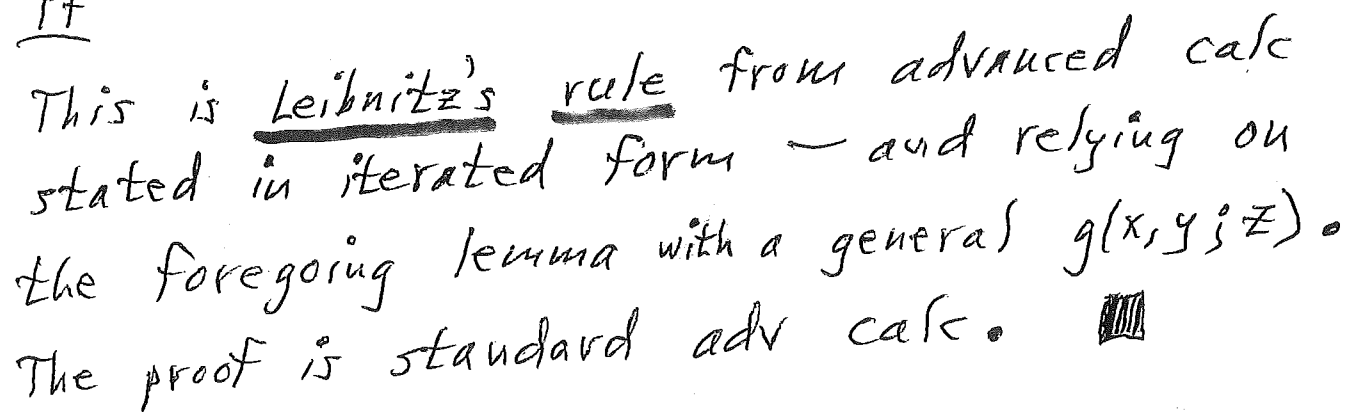 Pf
This is Leibnitz's rule from advanced calc
stated in iterated form — and relying on
the foregoing lemma with a general g(x,y;z).
The proof is standard adv calc.